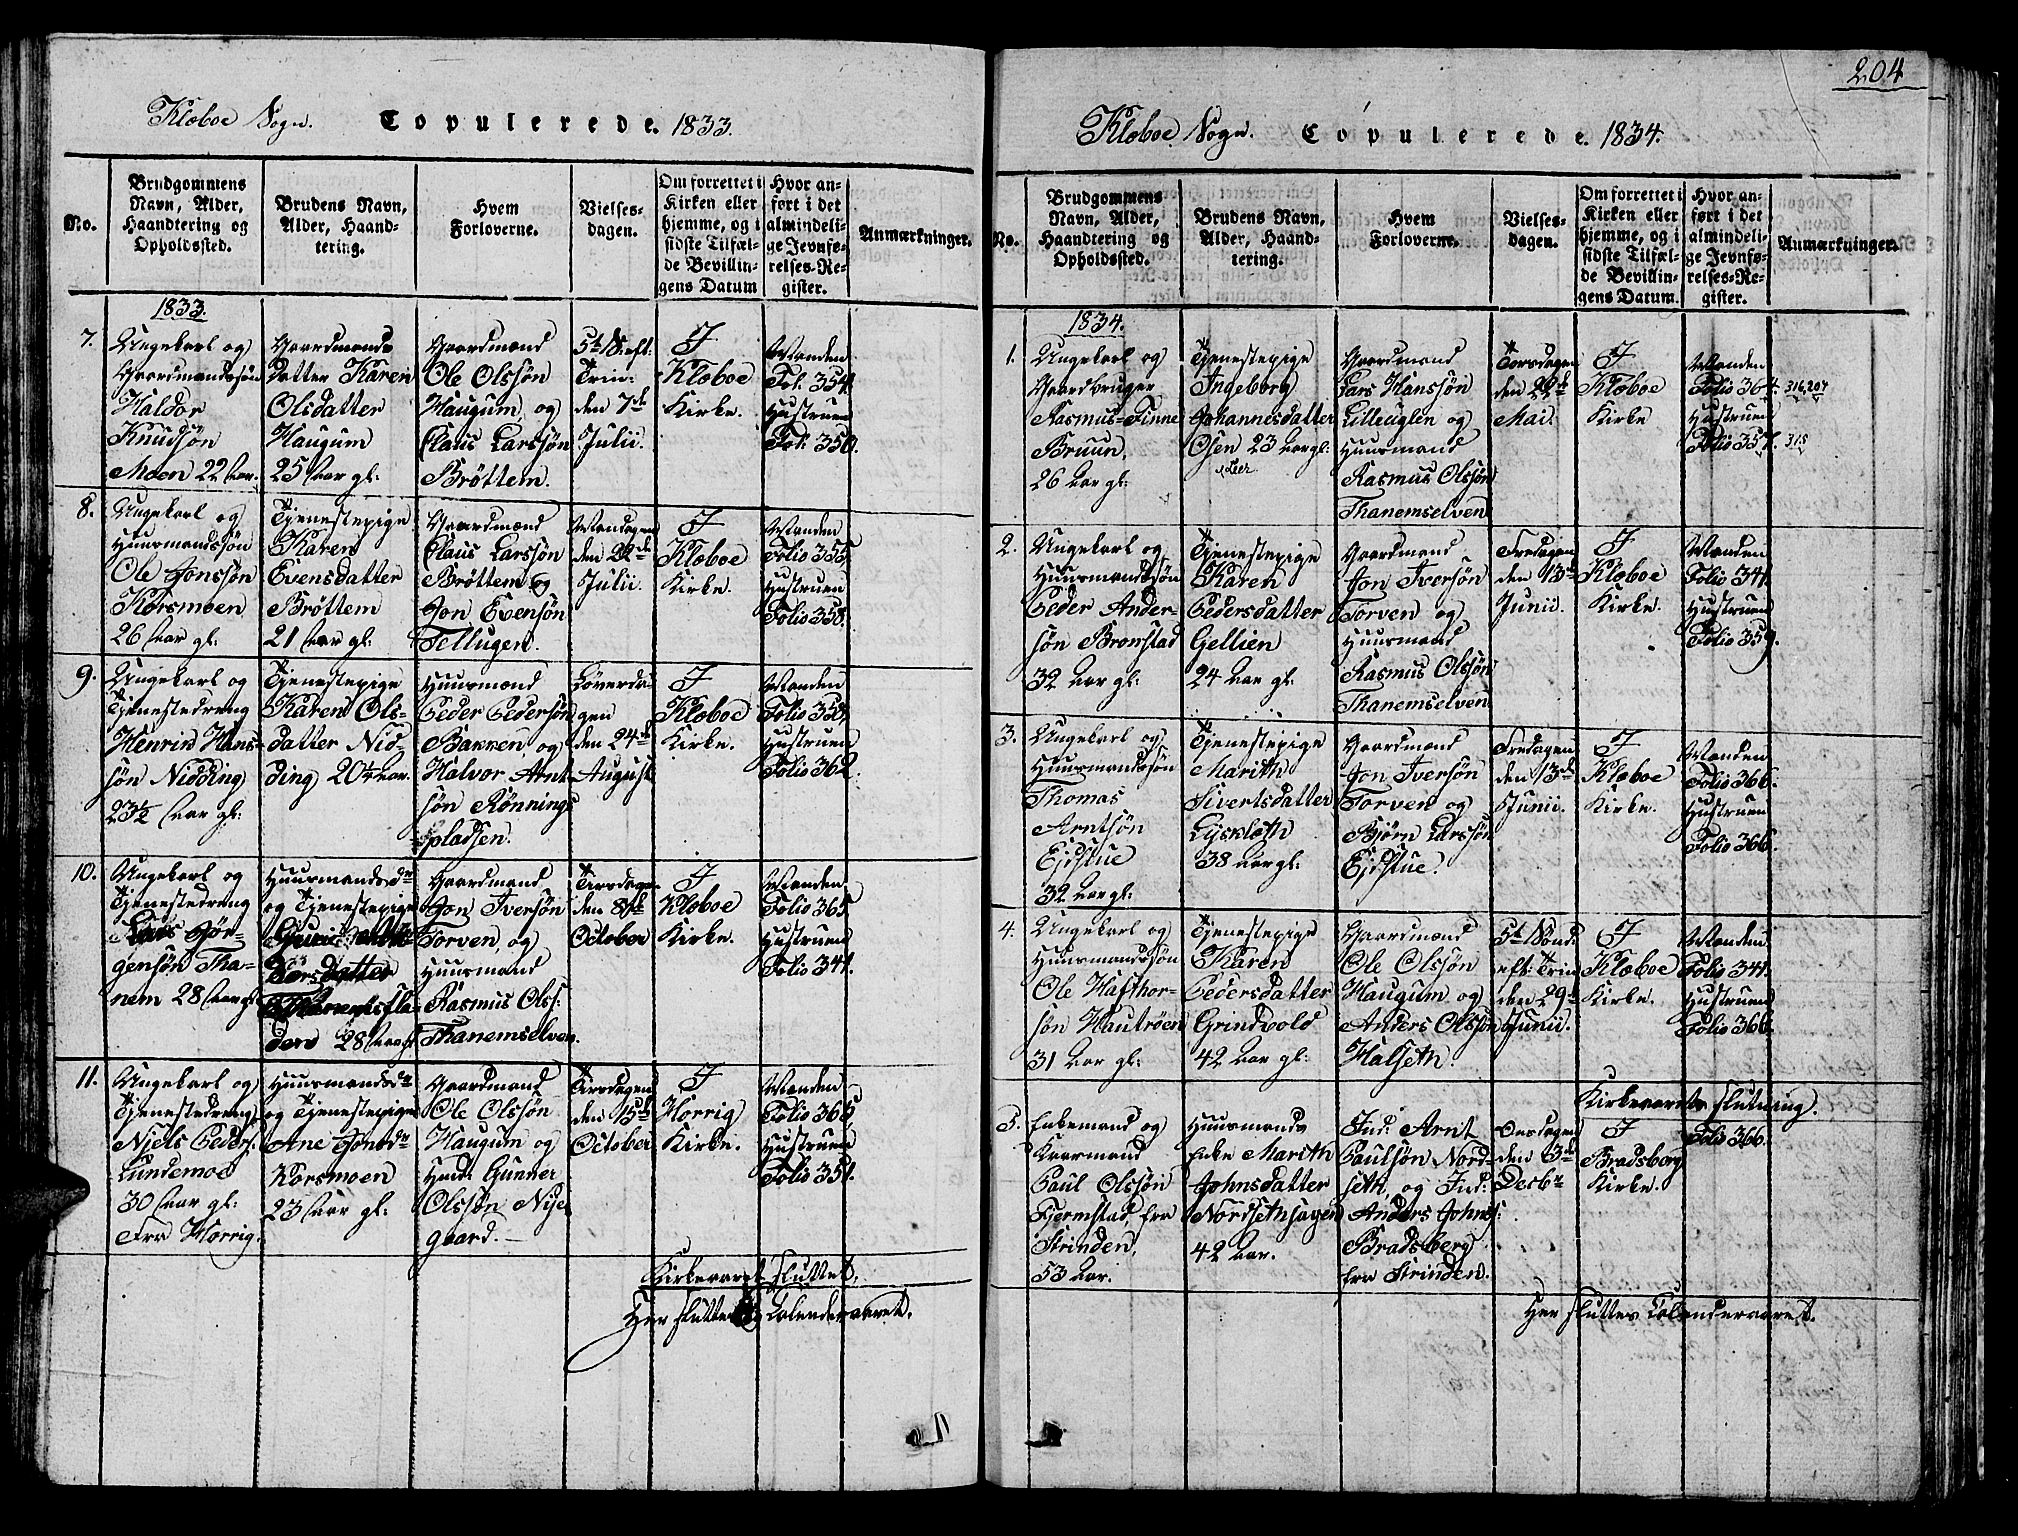 204
Klæboe Sogn. Copulerede. 1833.
No.
Brudgommens
Navn, Alder,
Haandtering og
Opholdssted.
Brudens Navn,
Alder, Haand-
tering.
Hvem
Forloverne.
Vielses-
dagen.
Om forrettet i
Kirken eller
hjemme, og i
sidste Tilfæl-
de Bevillin-
gens Datum
Hvor an-
ført i det
almindeli-
ge Jevnfø-
relses-Re-
gister.
Anmærkninger.
1833.
7.
Ungekarl og
Gaardmandssøn
Haldor
Knudsøn
Moen 22 Aar.
Gaardmands
datter Karen
Olsdatter
Haugum
25 Aar gl:
Gaardmænd
Ole Olssøn
Haugum og
Claus Larssøn
Brøttem.
5te S. eft.
Trin:
den 7de
Julii.
I
Klæboe
Kirke.
Manden
Fol: 354.
Hustruen
Fol: 350.
8.
Ungekarl og
Huusmandssøn
Ole Jonssøn
Korsmoen
26 Aar gl:
Tjenestepige
Karen
Evensdatter
Brøttem
21 Aar gl:
Gaardmænd
Claus Larssøn
Brøttem og
Jon Evensøn
Tellugen.
Mandagen
den 22de
Julii.
I
Klæboe
Kirke.
Manden
Folio 355.
Hustruen
Folio 358.
9.
Ungekarl og
Tjenestedreng
Henrik Hans-
søn Nidding
23½ Aar gl:
Tjenestepige
Karen Ols-
datter Nid-
ding 20¼ Aar.
Huusmænd
Peder Pedersøn
Bakken og
Halvor Arnt
søn Rønnings
pladsen.
Løverda-
gen
den 24de
August
I
Klæboe
Kirke.
Manden
Folio 358.
Hustruen
Folio 362.
10.
Ungekarl og
Tjenestedreng
Lars Jør-
gensøn Tha-
nem 28 Aar gl
Huusmandsdr
og Tjenestepige
datter
den 28 Aar gl
Gaardmand
Jon Iversøn
Torven og
Huusmand
Rasmus Olss:
Thanemselven.
Tirsdagen
den 8de
October
I
Klæboe
Kirke.
Manden
Folio 365
Hustruen
Folio 341.
11.
Ungekarl og
Tjenestedreng
Njels Peders:
Lundemoe
30 Aar gl:
Fra Horrig.
Huusmandsdr
og Tjenestepige
Ane Jonsdr
Korsmoen
23 Aar gl:
Gaardmand
Ole Olssøn
Haugum og
Gunner
Olssøn Nye
gaard.
Tirsdagen
den 15de
October
I
Horrig
Kirke.
Manden
Folio 365
Hustruen
Folio 351.
Kirkeaaret sluttet.
Her sluttes Calenderaaret.
Klæboe Sogn. Copulerede. 1834.
No.
Brudgommens
Navn, Alder,
Haandtering og
Opholdssted.
Brudens Navn,
Alder, Haand-
tering.
Hvem
Forloverne.
Vielses-
dagen.
Om forrettet i
Kirken eller
hjemme, og i
sidste Tilfæl-
de Bevillin-
gens Datum.
Hvor an-
ført i det
almindeli-
ge Jevnfø-
relses-Re-
gister.
Anmærkninger.
1834.
1.
Ungekarl og
Gaardbruger
Rasmus Finne
Bruun,
26 Aar gl:
Tjenestepige
Ingeborg
Johannesdatter
Osen 23 Aar gl:
Gaardmand
Lars Hanssøn
Lilleuglen og
Huusmand
Rasmus Olssøn
Thanemselven
Torsdagen
den 22de
Mai.
I
Klæboe
Kirke
Manden
Folio 364.
Hustruen
Folio 357.
316, 207
315
2.
Ungekarl og
Huusmandssøn
Peder Ander-
søn Bromstad
32 Aar gl:
Tjenestepige
Karen
Pedersdatter
Gellien
24 Aar gl:
Gaardmand
Jon Iversøn
Torven og
Huusmand
Rasmus Olssøn
Thanemselven
Fredagen
den 13de
Junii.
I
Klæboe
Kirke.
Manden
Folio 341.
Hustruen
Folio 359.
3.
Ungekarl og
Huusmandssøn
Thomas
Arntsøn
Ejdstue
32 Aar gl:
Tjenestepige
Marith
Sivertsdatter
Lyskløth
38 Aar gl:
Gaardmand
Jon Iversøn
Torven og
Bjørn Larssøn
Ejdstue.
Fredagen
den 13de
Junii.
I
Klæboe
Kirke.
Manden
Folio 366.
Hustruen
Folio 366.
4.
Ungekarl og
Huusmandssøn
Ole Hafthor-
søn Hautrøen
31 Aar gl:
Tjenestepige
Karen
Pedersdatter
Grindvold
42 Aar gl:
Gaardmænd
Ole Olssøn
Haugum og
Anders Olssøn
Halseth.
5te Sønd.
eft: Trin
den 29de
Junii.
I
Klæboe
Kirke.
Manden
Folio 341.
Hustruen
Folio 366.
Kirkeaarets Slutning.
5.
Enkemand og
Kaarmand
Paul Olssøn
Fjermstad, fra
Strinden,
53 Aar.
Huusmands
Enke Marith
Johnsdatter
Nordsethhagen
42 Aar.
Ind: Arnt
Paulsøn Nord-
seth, og Ind:
Anders Johns:
Bradsberg
fra Strinden.
Onsdagen
den 3de
Decbr
I
Bradsberg
Kirke.
Folio 366.
Her sluttes Calenderaaret.